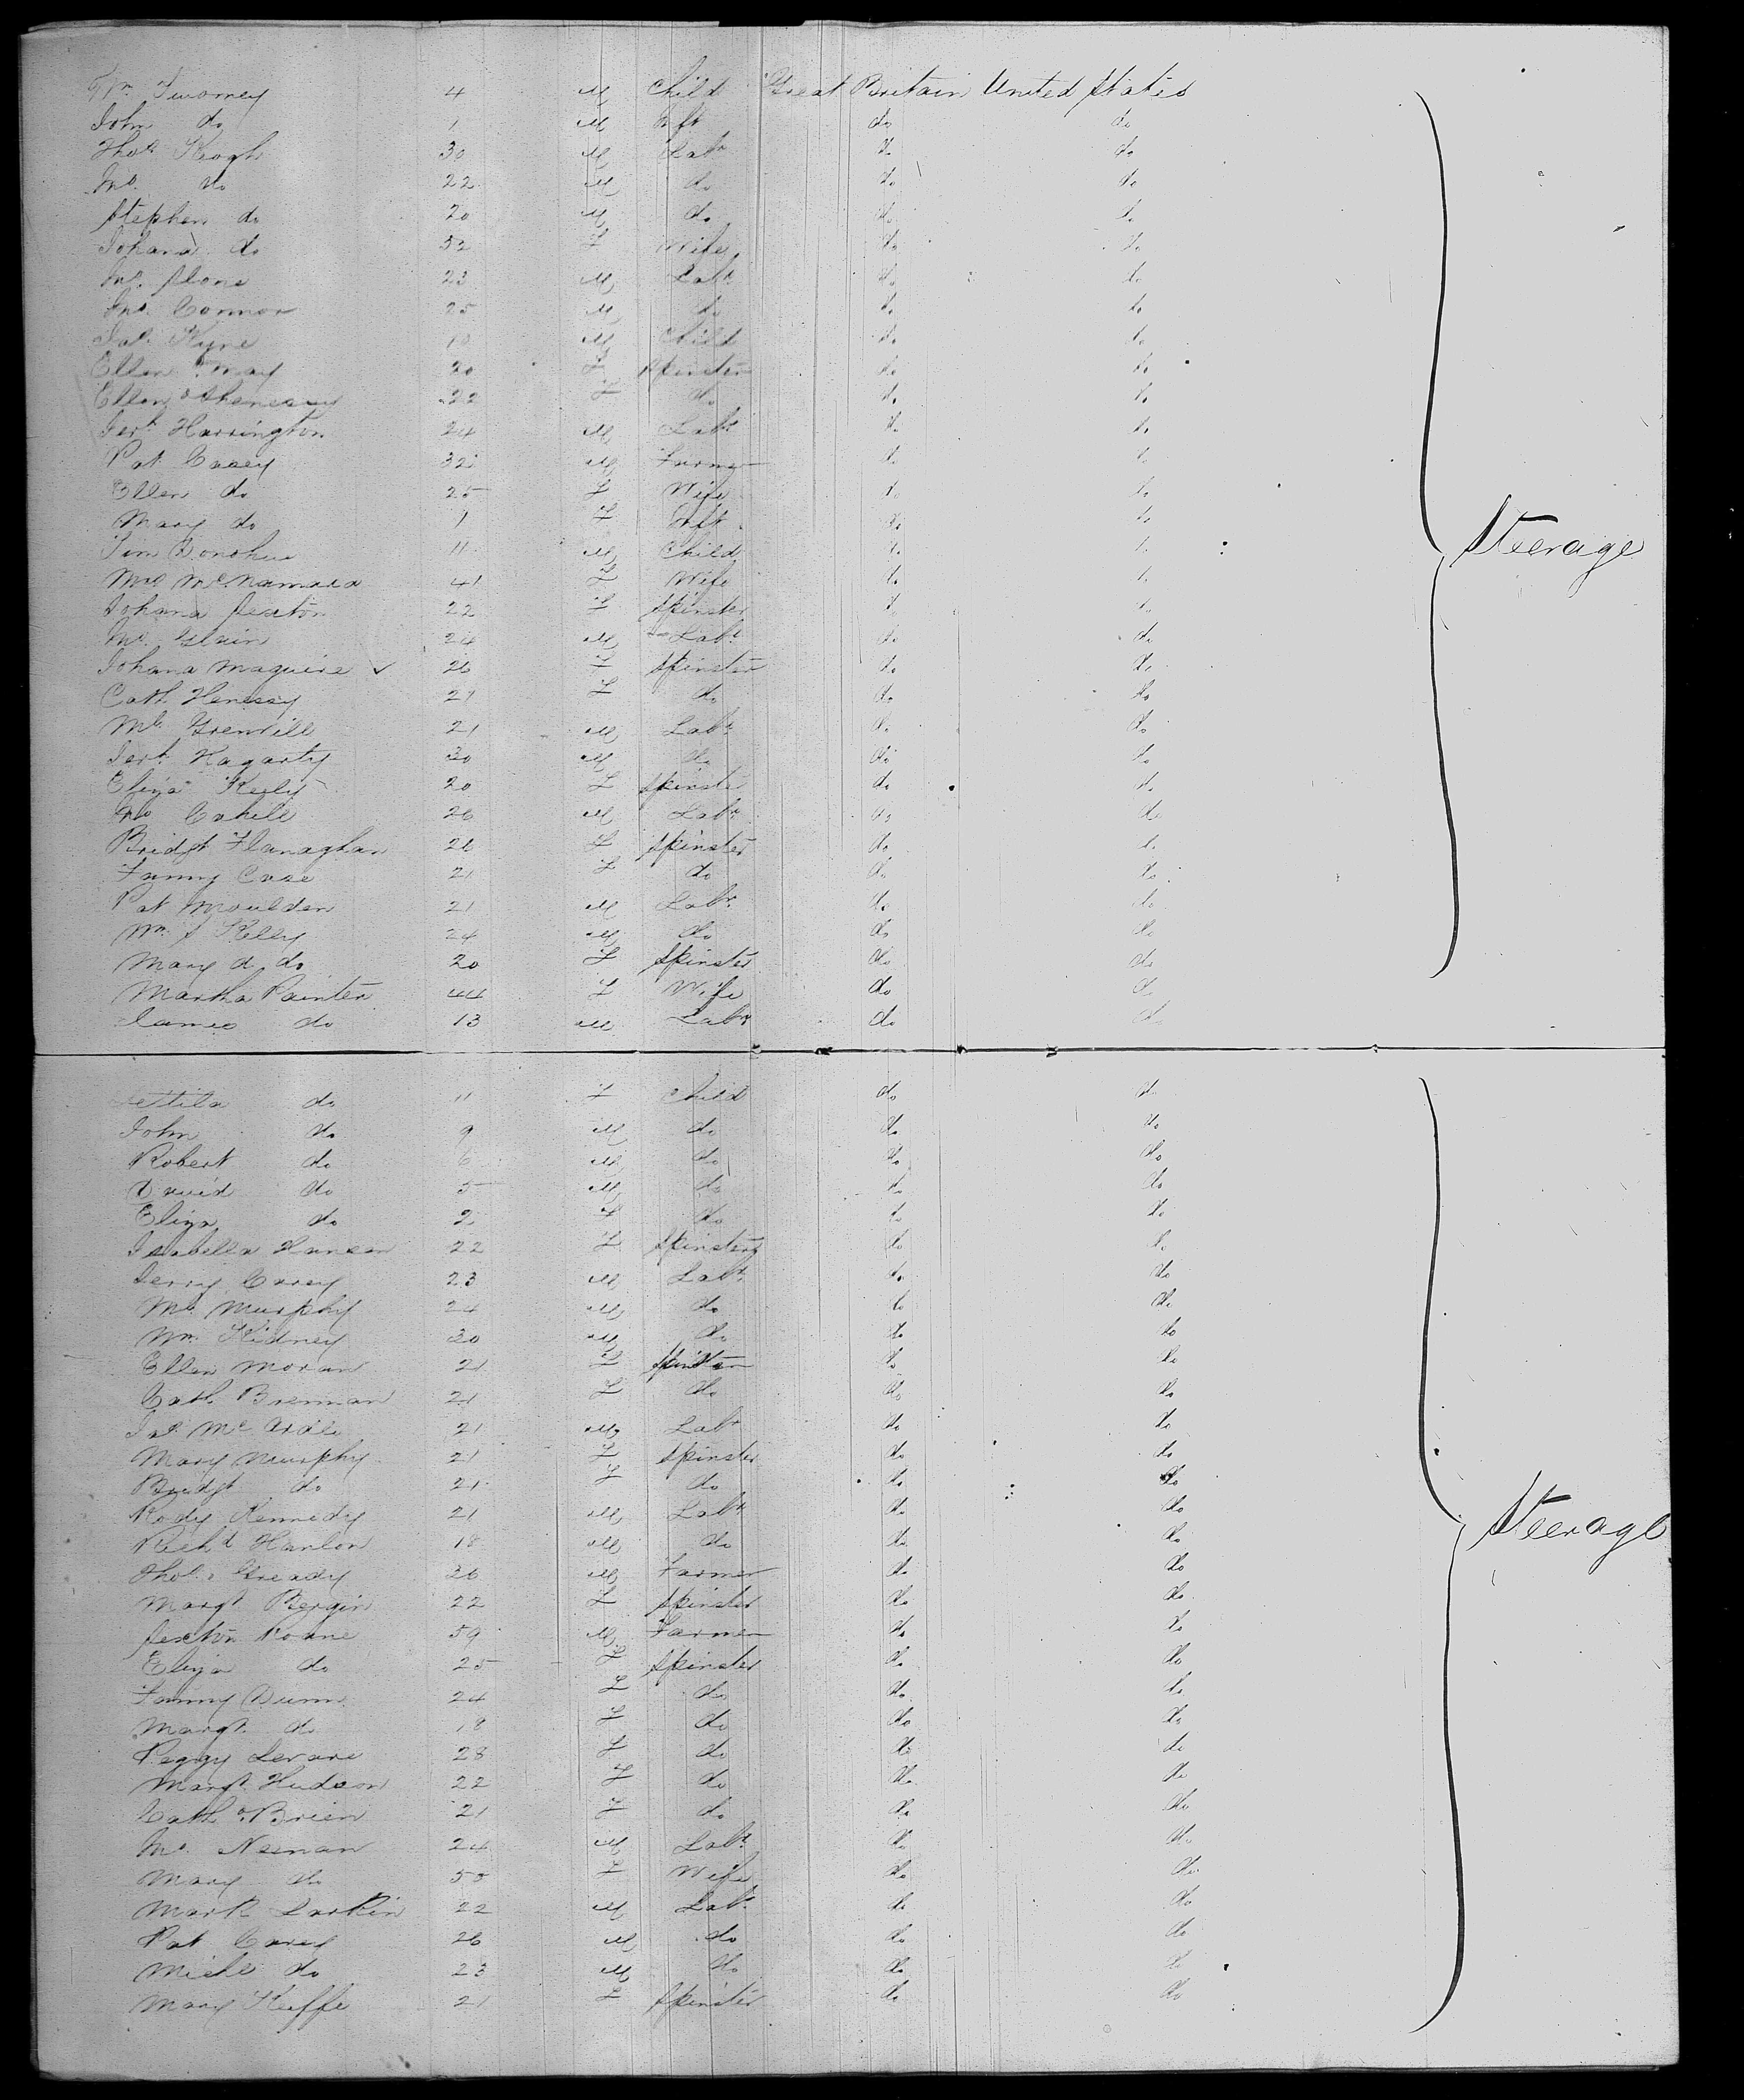 Wm Twomey 4 M Child Great Britain United States
John do 1 M Inft do do
Thos Keogh 30 M Labr do do
Jno do 22 M do do do
Stephen do 20 M do do do
Johana do 52 F Wife do do
Jno 23 M Labr do do
Jno Connor 25 M do do do
Jas Kyne 10 M Child do do
Ellen May 20 F Spinster do do
Ellen 22 F do do do
Jerh Harrington 24 M Labr do do
Pat Casey 32 M Farmer do do
Ellen do 25 F Wife do do
Mary do 1 F Inft do do
Tim Donohue 11 M Child do do
Steerage
Mrs McNamara 41 F Wife do do
Johana Sexton 22 F Spinster do do
Jno 24 M Labr do do
Johana Maguire ✓ 26 F Spinster do do
Cath Henessy 21 F do do do
Ml Grenvill 21 M Labr do do
Jerh Hagarty 30 M do do do
Eliza Keily 20 F Spinster do do
Jno Cahill 26 M Labr do do
Bridgt Flanaghan 26 F Spinster do do
Fanny Case 21 F do do do
Pat Moulden 21 M Labr do do
Wm S Kelly 24 M do do do
Mary A do 20 F Spinster do do
Martha Painter 44 F Wife do do
James do 13 M Labr do do
do 11 F Child do do
John do 9 M do do do
Robert do 6 M do do do
David do 5 M do do do
Eliza do 2 F do do do
Isabella Hansen 22 F Spinster do do
Jerry Carey 23 M Labr do do
Ml Murphy 24 M do do do
Wm Kidney 20 M do do do
Ellen Moran 21 F Spinster do do
Cath Brennan 21 F do do do
Jas McArdle 21 M Labr do do
Mary Murphy 21 F Spinster do do
Bridgt do 21 F do do do
Rody Kennedy 21 M Labr do do
Steerage
Richd Hanlon 18 M do do do
Thos Gready 26 M Farmer do do
Margt Bergin 22 F Spinster do do
Sexton Roane 59 M Farmer do do
Eliza do 25 F Spinster do do
Fanny Dunn 24 F do do do
Margt do 18 F do do do
Peggy 28 F do do do
Margt Hudson 22 F do do do
Cath OBrien 21 F do do do
Jno Neenan 24 M Labr do do
Mary do 50 F Wife do do
Mark Larkin 22 M Labr do do
Pat Carey 26 M do do do
Michl do 23 M do do do
Mary Keeffe 21 F Spinster do do